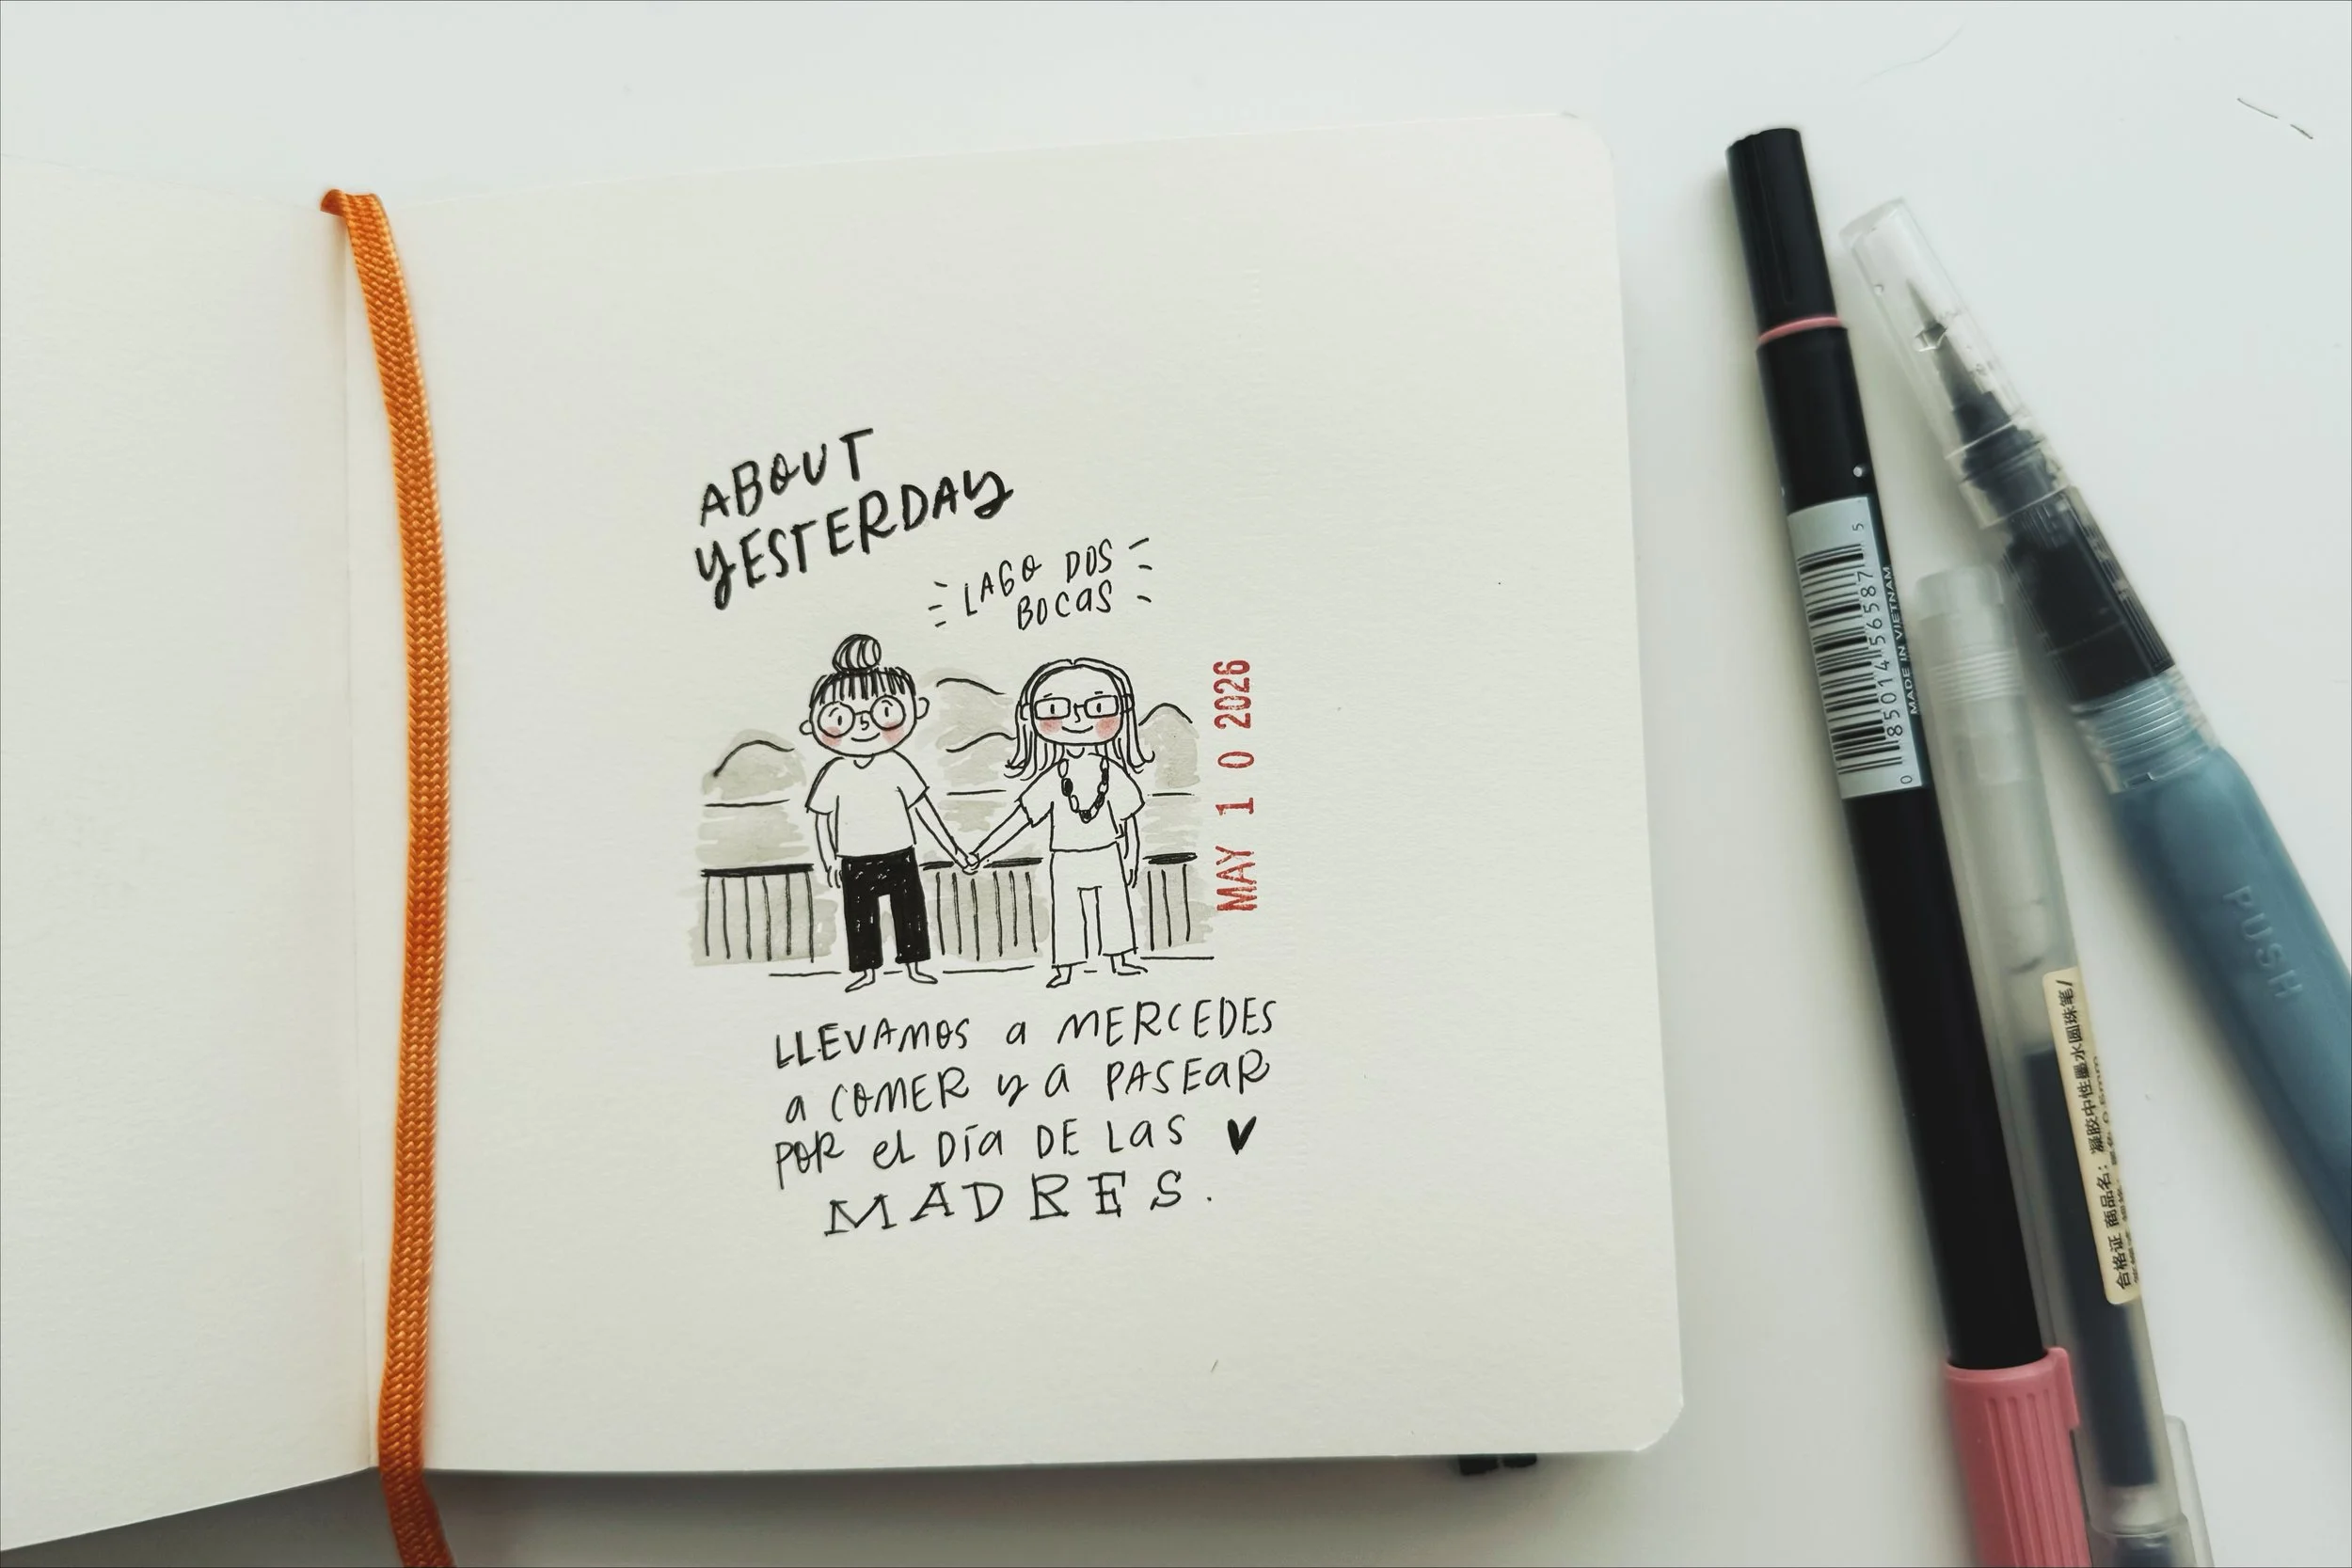 ABOUT
YESTERDAY
LAGO DOS
BOCAS
MAY 10 2026
LLEVAMOS a MERCEDES
a COMER y a PASEAR
POR el Día DE Las
MADRES.
0 85014 56587 5
MADE IN VIETNAM
PUSH
合格证 商品名: 凝胶中性墨水圆珠笔/